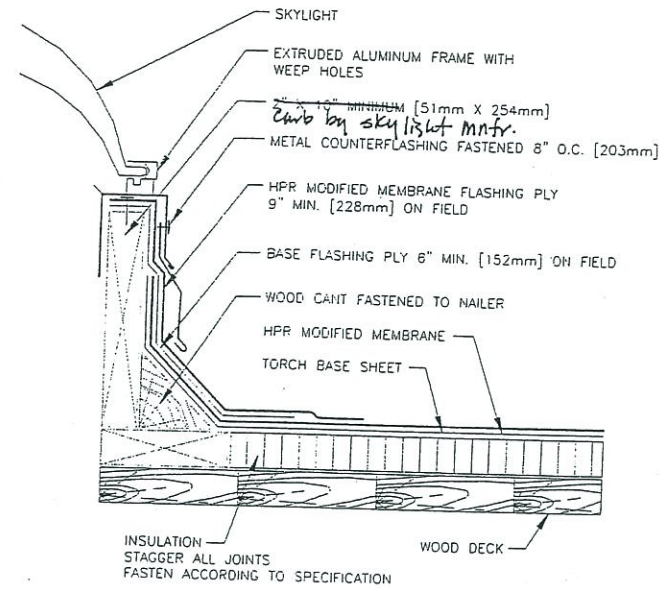 SKYLIGHT
EXTRUDED ALUMINUM FRAME WITH
WEEP HOLES
2" X 10" MINIMUM [51mm X 254mm]
Curb by skylight mnfr.
METAL COUNTERFLASHING FASTENED 8" O.C. [203mm]
HPR MODIFIED MEMBRANE FLASHING PLY
9" MIN. [228mm] ON FIELD
BASE FLASHING PLY 6" MIN. [152mm] ON FIELD
WOOD CANT FASTENED TO NAILER
HPR MODIFIED MEMBRANE
TORCH BASE SHEET
INSULATION
STAGGER ALL JOINTS
FASTEN ACCORDING TO SPECIFICATION
WOOD DECK